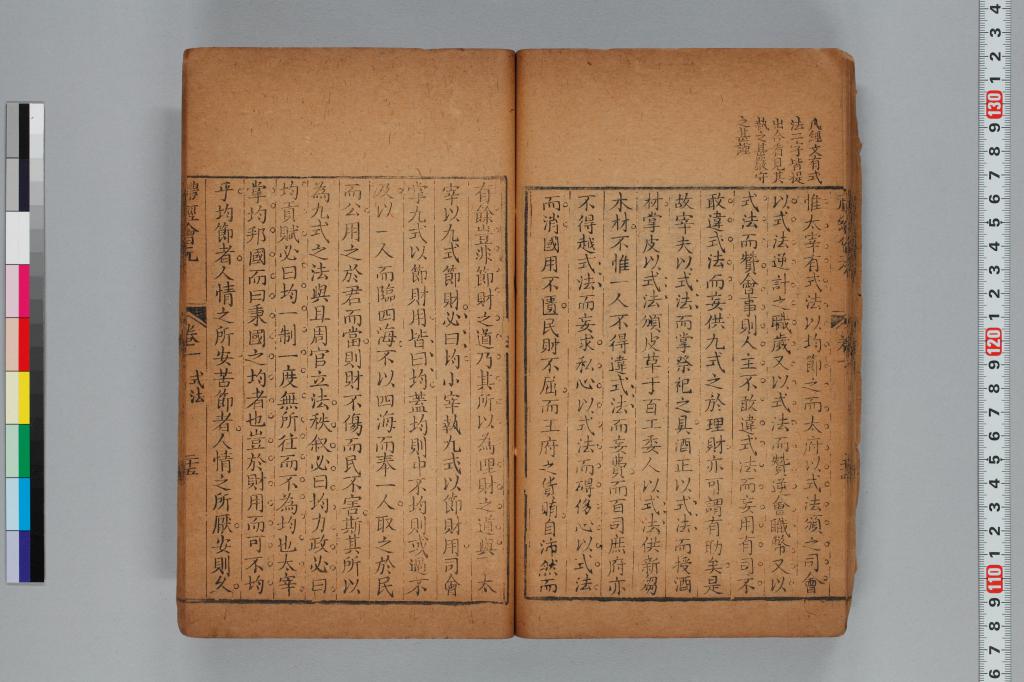 凡經文有式
法二字皆提
出令看見其
執之甚嚴守
之甚謹
惟太宰有式法以均節之而太府以式法頒之司會
以式法逆計之職歲又以式法而贊逆會職幣又以
式法而贊會事則人主不敢違式法而妄用有司不
敢違式法而妄供九式之於理財亦可謂有助矣是
故宰夫以式法而掌祭祀之具酒正以式法而授酒
材掌皮以式法頒皮革于百工委人以式法供薪芻
木材不惟一人不得違式法而妄費而百司庶府亦
不得越式法而妄求私心以式法而碍侈心以式法
而消國用不匱民財不屈而王府之貨賄自沛然而
有餘豈非節財之道乃其所以為理財之道與 太
宰以九式節財必曰均小宰執九式以節財用司會
掌九式以節財用皆曰均蓋均則中不均則或過不
及以一人而臨四海不以四海而奉一人取之於民
而公用之於君而當則財不傷而民不害斯其所以
為九式之法與且周官立法秩叙必曰均力政必曰
均貢賦必曰均一制一度無所往而不為均也太宰
掌均邦國而曰秉國之均者也豈於財用而可不均
乎均節者人情之所安苦節者人情之所厭安則久
禮經會元
卷一
式法
二十五